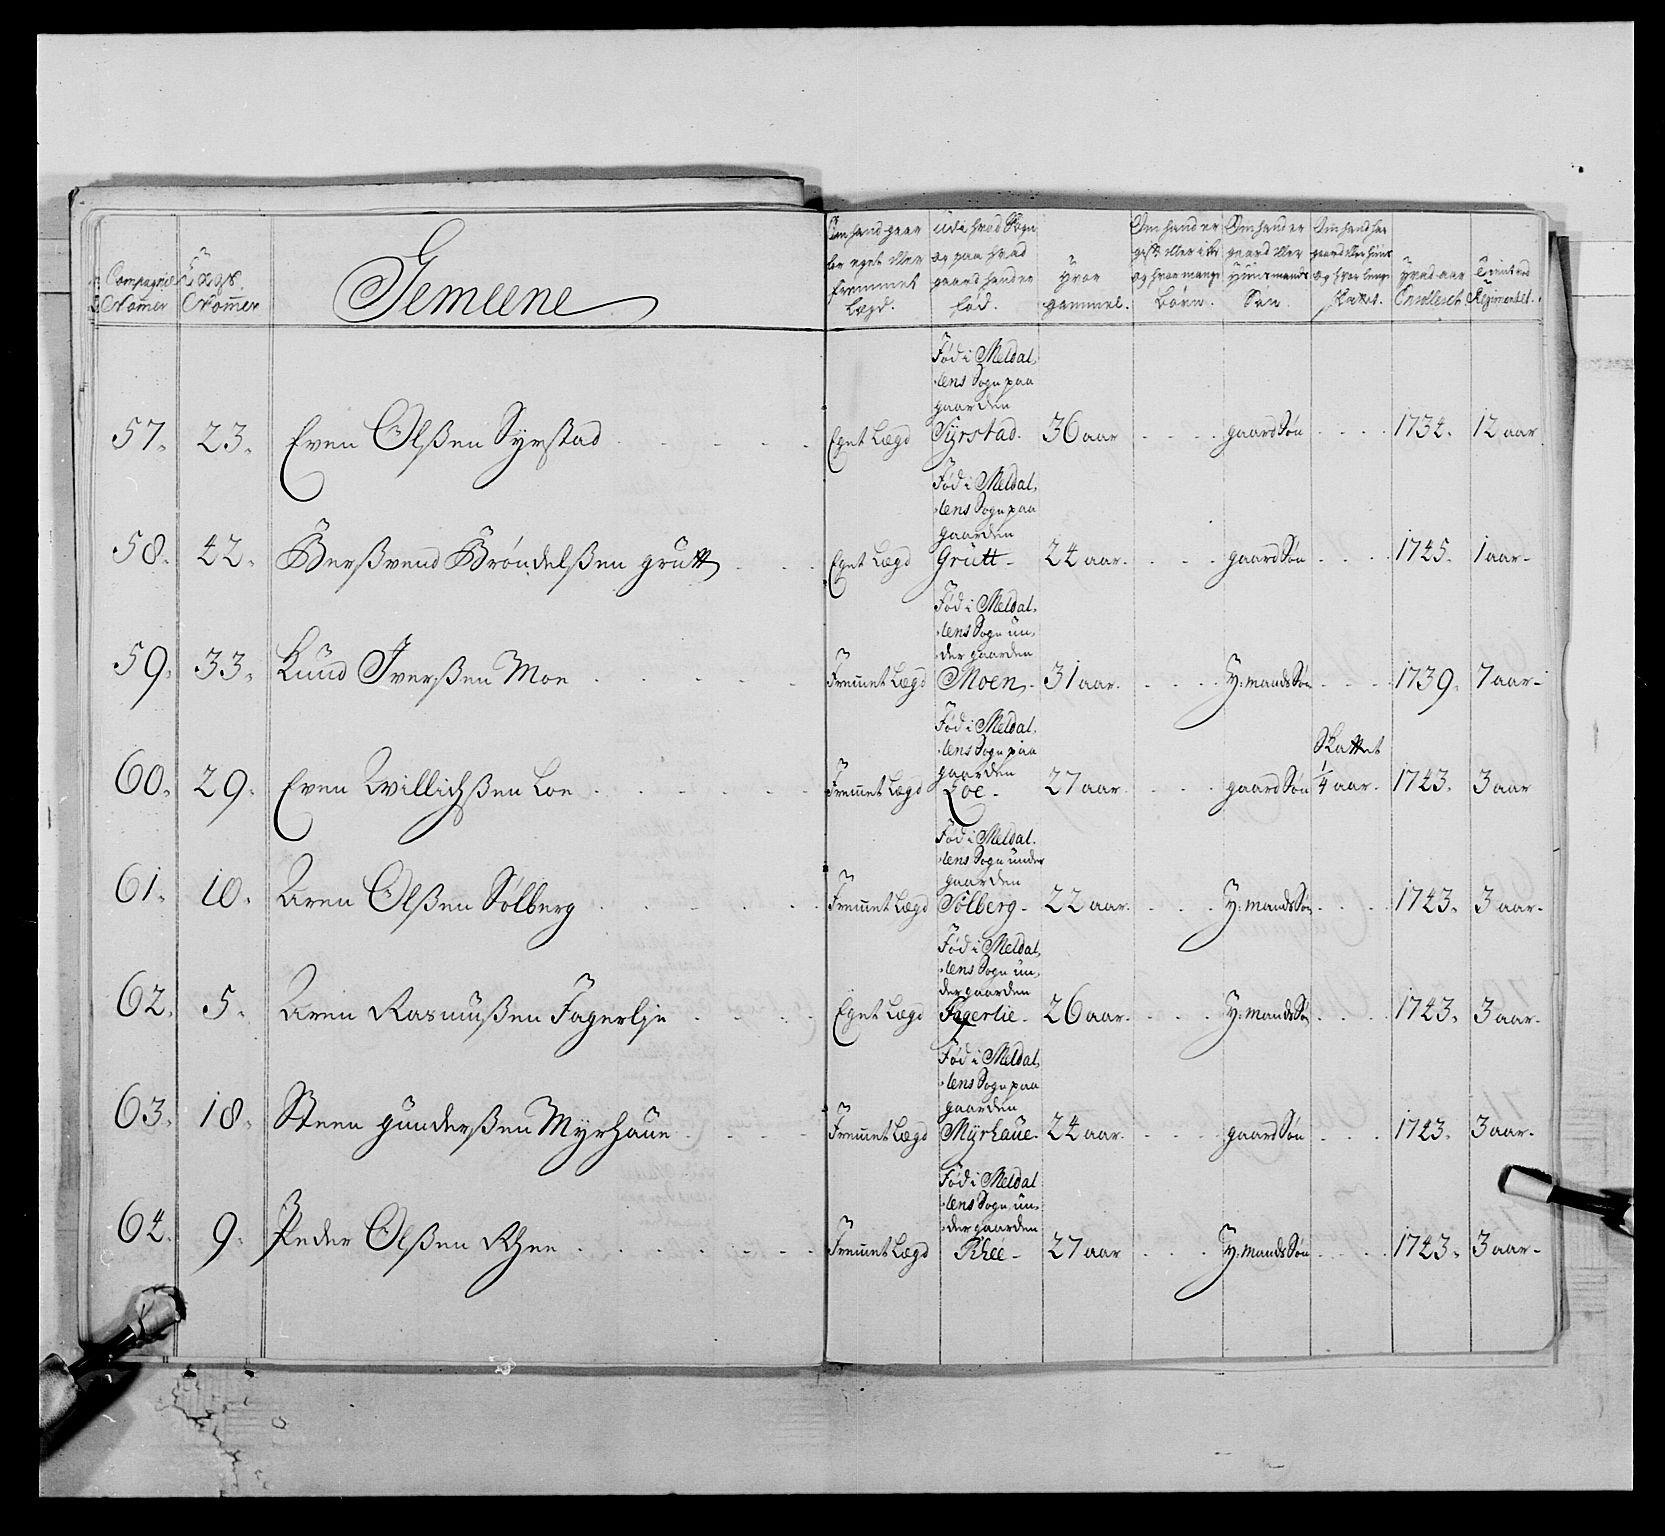 Compagnie Nomer
Lægs Nomer
Gemeene
Om hand staar for eget eller fremmet Lægd.
udi hvad Sogn og paa hvad gaard hand er fød.
Hvor gammel.
Om hand er gift eller icke og hvor mange Børn.
Om hand er gaard eller Huusmands Søn.
Om hand har gaard eller huus og hvor lenge skattet.
Hvad aar Enrollert
Tient ved Regimentet.
57. 23. Even Olßen Syrstad Eget Lægd Fød i Meldallens Sogn paa gaarden Syrstad. 36 aar gaard Søn 1734. 12 aar
58. 42. Berßvend Brøndelßen grutt Eget Lægd Fød i Meldallens Sogn paa gaarden Grutt 24 aar. gaard Søn 1745. 1 aar
59. 33. Knud Iverßen Moe Fremet Lægd Fød i Meldallens Sogn under gaarden Moen 31 aar. H: mands Søn 1739. 7 aar
60. 29. Even Willichßen Loe Fremet Lægd Fød i Meldallens Sogn paa gaarden Loe 27 aar. gaard Søn Skattet 1/4 aar. 1743. 3 aar
61. 10. Aren Olßen Sølberg Fremet Lægd Fød i Meldallens Sogn under gaarden Sølberg 22 aar. H: mands Søn 1743. 3 aar
62. 5. Aren Rasmußen Fagerlje Eget Lægd Fød i Meldallens Sogn under gaarden Fagerlie 26 aar. H: mands Søn 1743. 3 aar
63. 18. Steen gunderßen Myrhaue Fremet Lægd Fød i Meldallens Sogn paa gaarden Myrhaue 24 aar. gaard Søn 1743. 3 aar
64. 9. Peder Olßen Rhee Fremet Lægd Fød i Meldallens Sogn under gaarden Rhee 27 aar H: mands Søn 1743. 3 aar